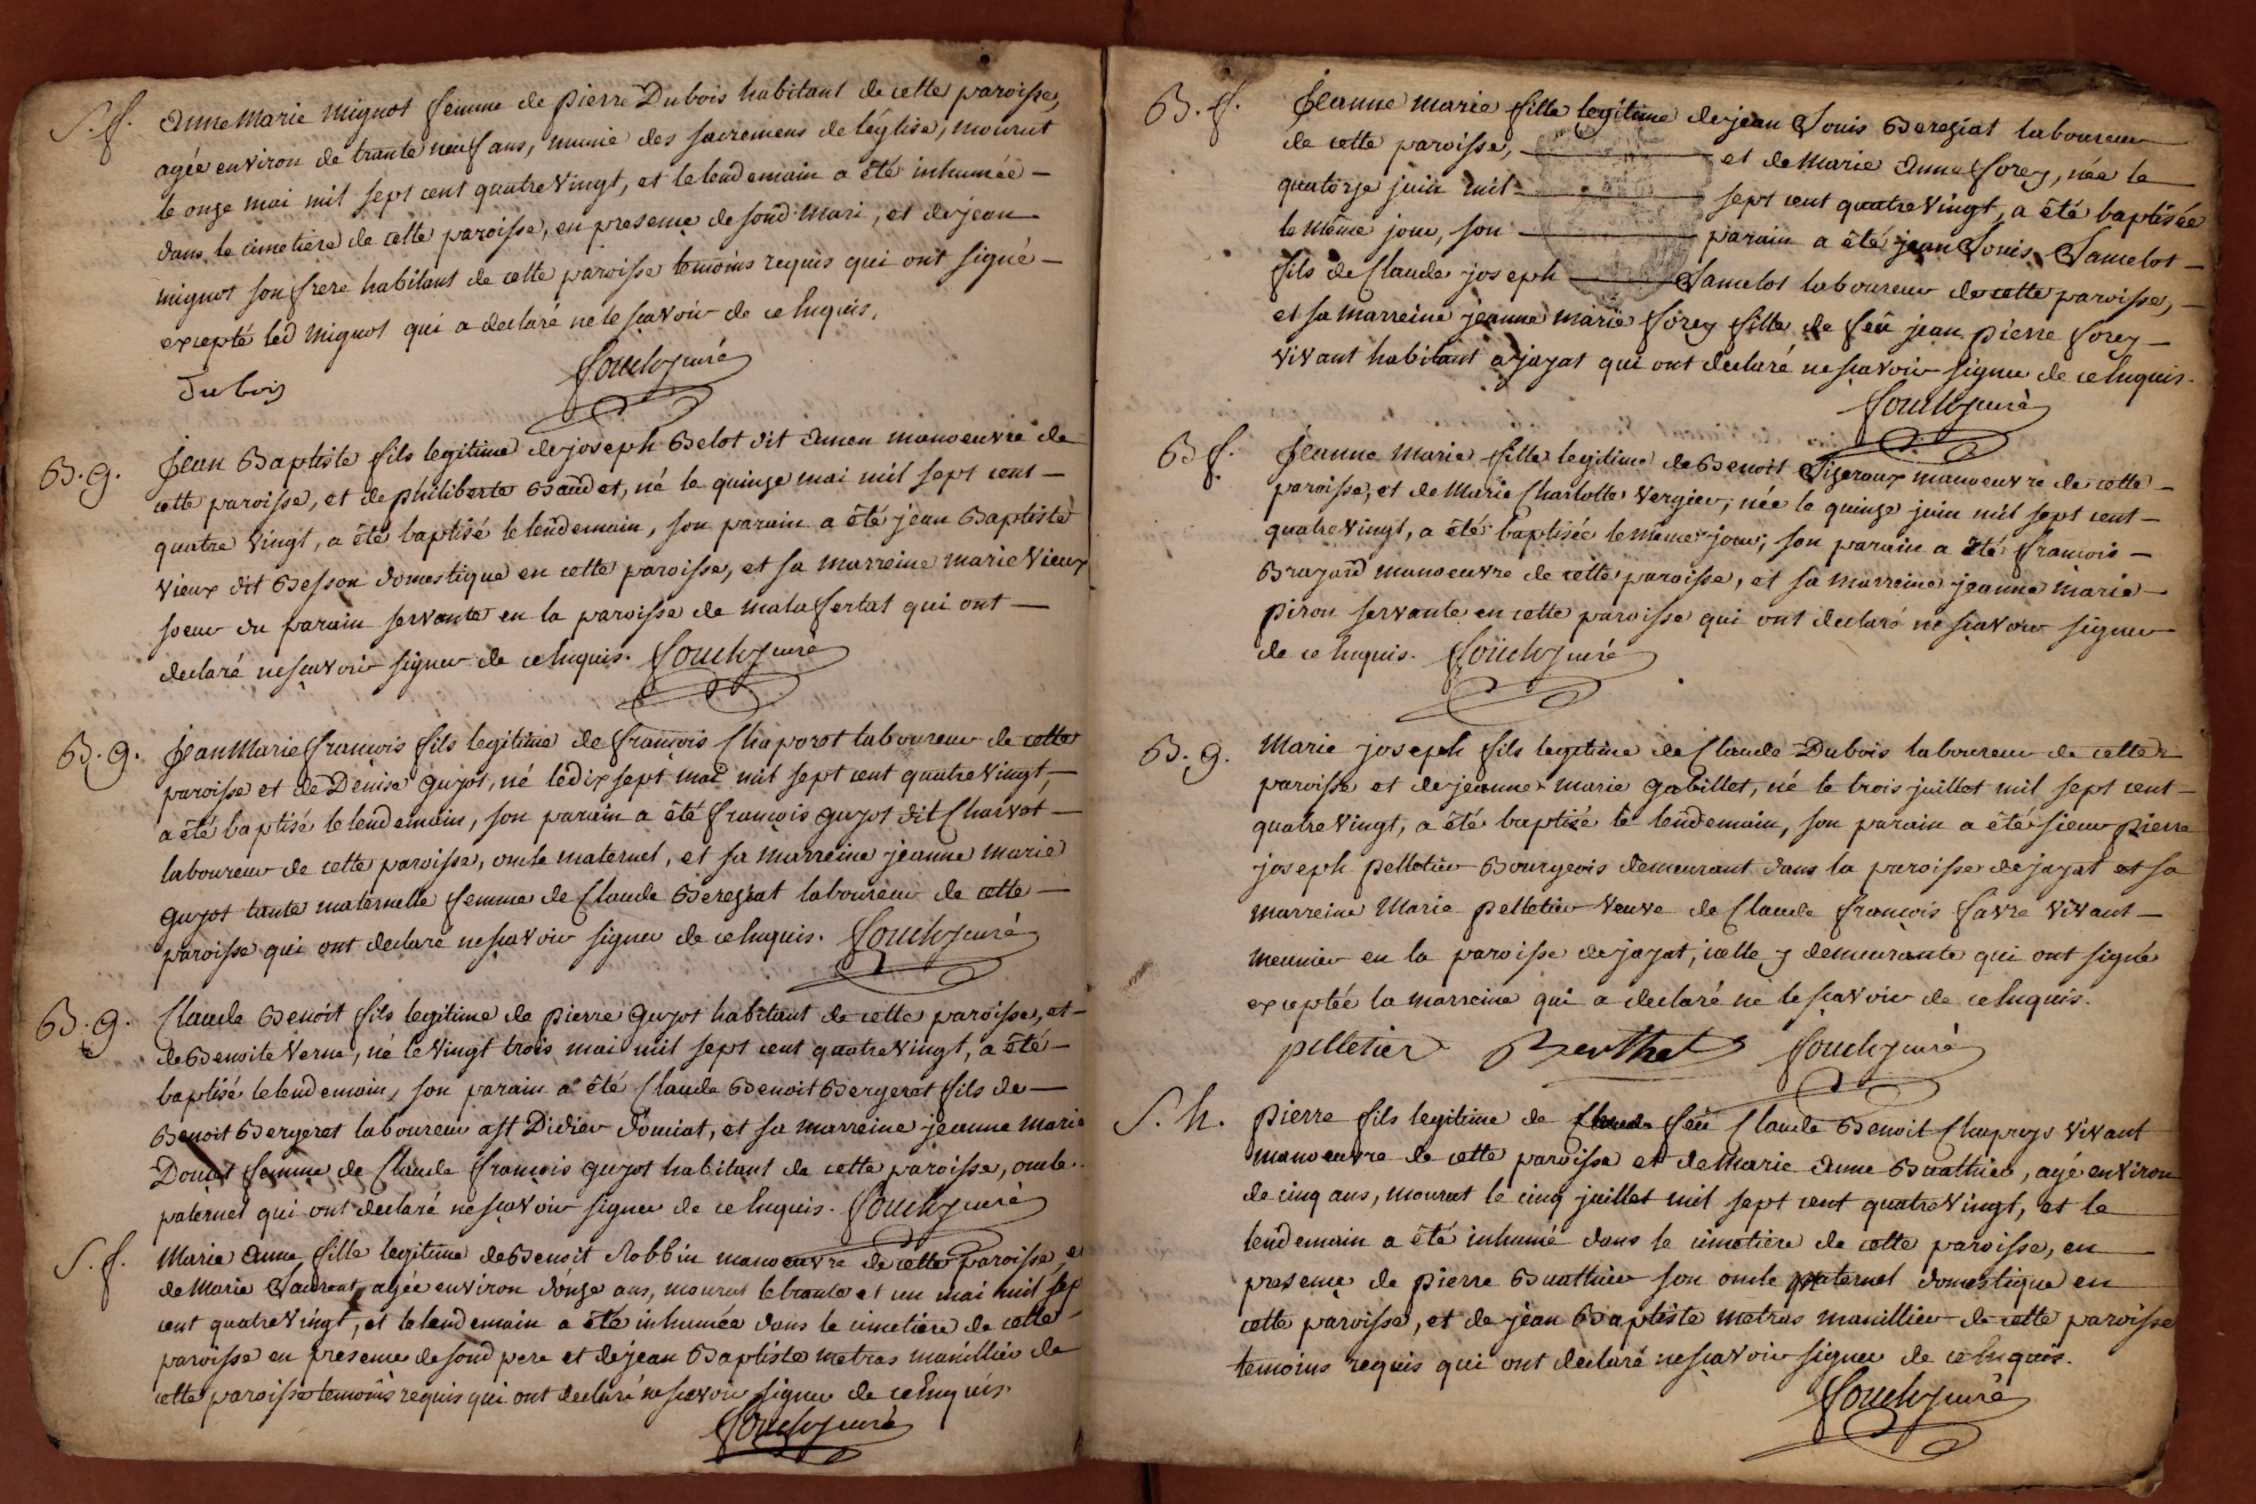 S. f. Anne Marie Mignot femme de Pierre Dubois habitant de cette paroisse,
agée environ de trante neuf ans, munie des sacremens de l'église, mourut
le onze mai mil sept cent quatre Vingt, et le lendemain a été inhumée –
dans le cimetière de cette paroisse, en presence de sond. Mari, et de jean
mignot son frere habitant de cette paroisse temoins requis qui ont signé –
excepté led mignot qui a declaré ne le sçavoir de ce Enquis.
Dubois curé
B. g. Jean Baptiste fils legitime de joseph Belot dit manoeuvre de
cette paroisse, et de philiberte Baudet, né le quinze mai mil sept cent –
quatre Vingt, a été baptisé le lendemain, son parain a été jean Baptiste
Vieux dit Besson domestique en cette paroisse, et sa marreine marie Vieux
soeur du parain servante en la paroisse de malafertat qui ont –
declaré ne sçavoir signer de ce Enquis. curé
B. g. Jean Marie françois fils legitime de françois Chaporot laboureur de cette
paroisse et de Denise guyot, né le dix sept mai mil sept cent quatre Vingt, –
a été baptisé le lendemain, son parain a été françois guyot dit Charvot –
laboureur de cette paroisse, oncle maternel, et sa marreine jeanne marie
guyot tante maternelle femme de Claude Bereziat laboureur de cette –
paroisse qui ont declaré ne sçavoir signer de ce Enquis. curé
B. g. Claude Benoit fils legitime de pierre guyot habitant de cette paroisse, et –
de Benoite Verne, né le Vingt trois mai mil sept cent quatre Vingt, a été –
baptisé le lendemain, son parain a été Claude Benoit Bergeret fils de –
Benoit Bergeret laboureur a St Didier d'ouciat, et sa marreine jeanne marie
Douçat femme de Claude françois guyot habitant de cette paroisse, oncle
paternel qui ont declaré ne sçavoir signer de ce Enquis. curé
S. f. Marie Anne fille legitime de Benoit Robbin manoeuvre de cette paroisse, et
de Marie Laurent, agée environ d'onze ans, mourut le trante et un mai mil sep
cent quatre Vingt, et le lendemain a été inhumée dans le cimetière de cette
paroisse en presence de sond pere et de jean Baptiste metras manillier de
cette paroisse temoins requis qui ont declaré ne sçavoir signer de ce Enquis.
curé
B. f. Jeanne marie fille legitime de jean Louis Bereziat laboureur
de cette paroisse, – et de Marie Anne forey, née le
quatorze juin mil – sept cent quatre Vingt, a été baptisée
le même jour, son – parain a été jean Louis Lamelot –
fils de Claude joseph – Lamelot laboureur de cette paroisse, –
et sa marreine jeanne marie forey fille de feû jean pierre forey –
vivant habitant a jayat qui ont declaré ne sçavoir signer de ce Enquis.
curé
B f. Jeanne Marie fille legitime de Benoit manoeuvre de cette –
paroisse, et de Marie Charlotte Vergier, née le quinze juin mil sept cent –
quatre Vingt, a été baptisée le même jour, son parain a été françois –
Brazard manoeuvre de cette paroisse, et sa marreine jeanne marie –
piron servante en cette paroisse qui ont declaré ne sçavoir signer
de ce Enquis. curé
B. g. Marie joseph fils legitime de Claude Dubois laboureur de cette
paroisse et de jeanne marie gabillet, né le trois juillet mil sept cent –
quatre Vingt, a été baptisé le lendemain, son parain a été sieur pierre
joseph pelletier Bourgeois demeurant dans la paroisse de jayat et sa
marreine Marie pelletier Veuve de Claude françois favre Vivant –
meunier en la paroisse de jayat, icelle y demeurante qui ont signé
exceptée la marreine qui a declaré ne le sçavoir de ce Enquis.
pelletier Berthet curé
S. h. pierre fils legitime de feû Claude Benoit Chapuys Vivant
manoeuvre de cette paroisse et de Marie Anne Buathier, agé environ
de cinq ans, mourut le cinq juillet mil sept cent quatre Vingt, et le
lendemain a été inhumé dans le cimetière de cette paroisse, en
presence de pierre Buathier son oncle maternel domestique en
cette paroisse, et de jean Baptiste metras manillier de cette paroisse
temoins requis qui ont declaré ne sçavoir signer de ce Enquis.
curé